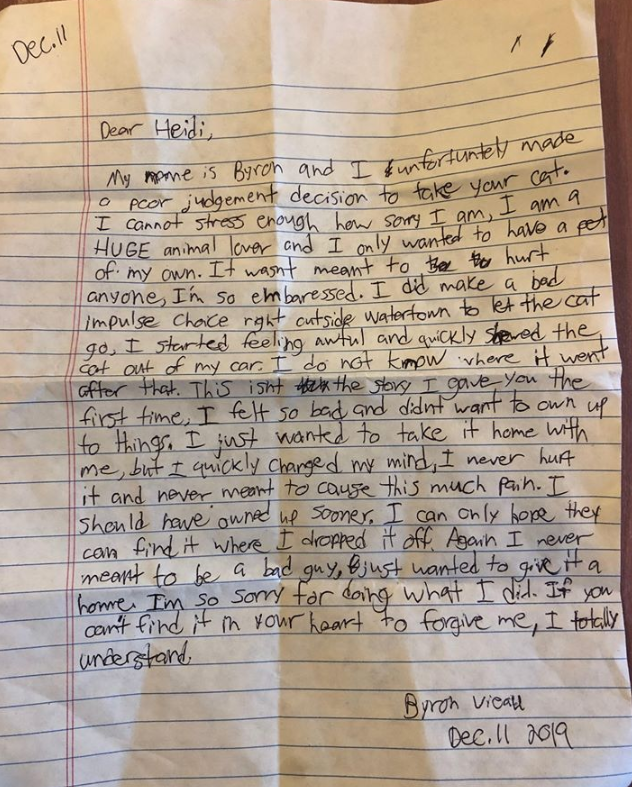 Dec.11
Dear Heidi,
My name is Byron and I unfortuntely made
a poor judgement decision to take your cat.
I cannot stress enough how sorry I am, I am a
HUGE animal lover and I only wanted to have a pet
of my own. It wasnt meant to hurt
anyone, I'm so embaressed. I did make a bad
impulse choice right outside Watertown to let the cat
go, I started feeling awful and quickly the
cat out of my car. I do not know where it went
after that. This isnt the story I gave you the
first time, I felt so bad and didnt want to own up
to things. I just wanted to take it home with
me, but I quickly changed my mind, I never hurt
it and never meant to cause this much pain. I
should have owned up sooner. I can only hope they
can find it where I dropped it off. Again I never
meant to be a bad guy, just wanted to give it a
home. I'm so sorry for doing what I did. If you
can't find it in your heart to forgive me, I totally
understand.
Byron
Dec.11 2019